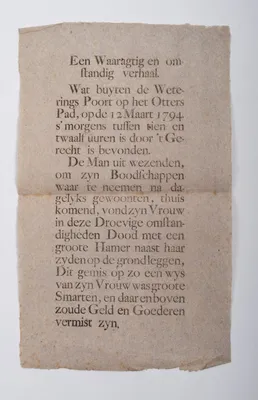 Een Waaragtig en om
standig verhaal.
Wat buyten de Wete-
rings Poort op het Otters
Pad, op de 12 Maart 1794
s'morgens tussen tien en
twaalf uuren is door 't Ge-
recht is bevonden.
De Man uit wezenden,
om zyn Boodschappen
waar te neemen na da-
gelyks gewoonten, thuis
komend, vond zyn Vrouw
in deze Droevige omstan-
digheden Dood met een
groote Hamer naast haar
zyden op de grond leggen,
Dit gemis op zo een wys
van zyn Vrouw was groote
Smarten, en daar en boven
zoude Geld en Goederen
vermist zyn.